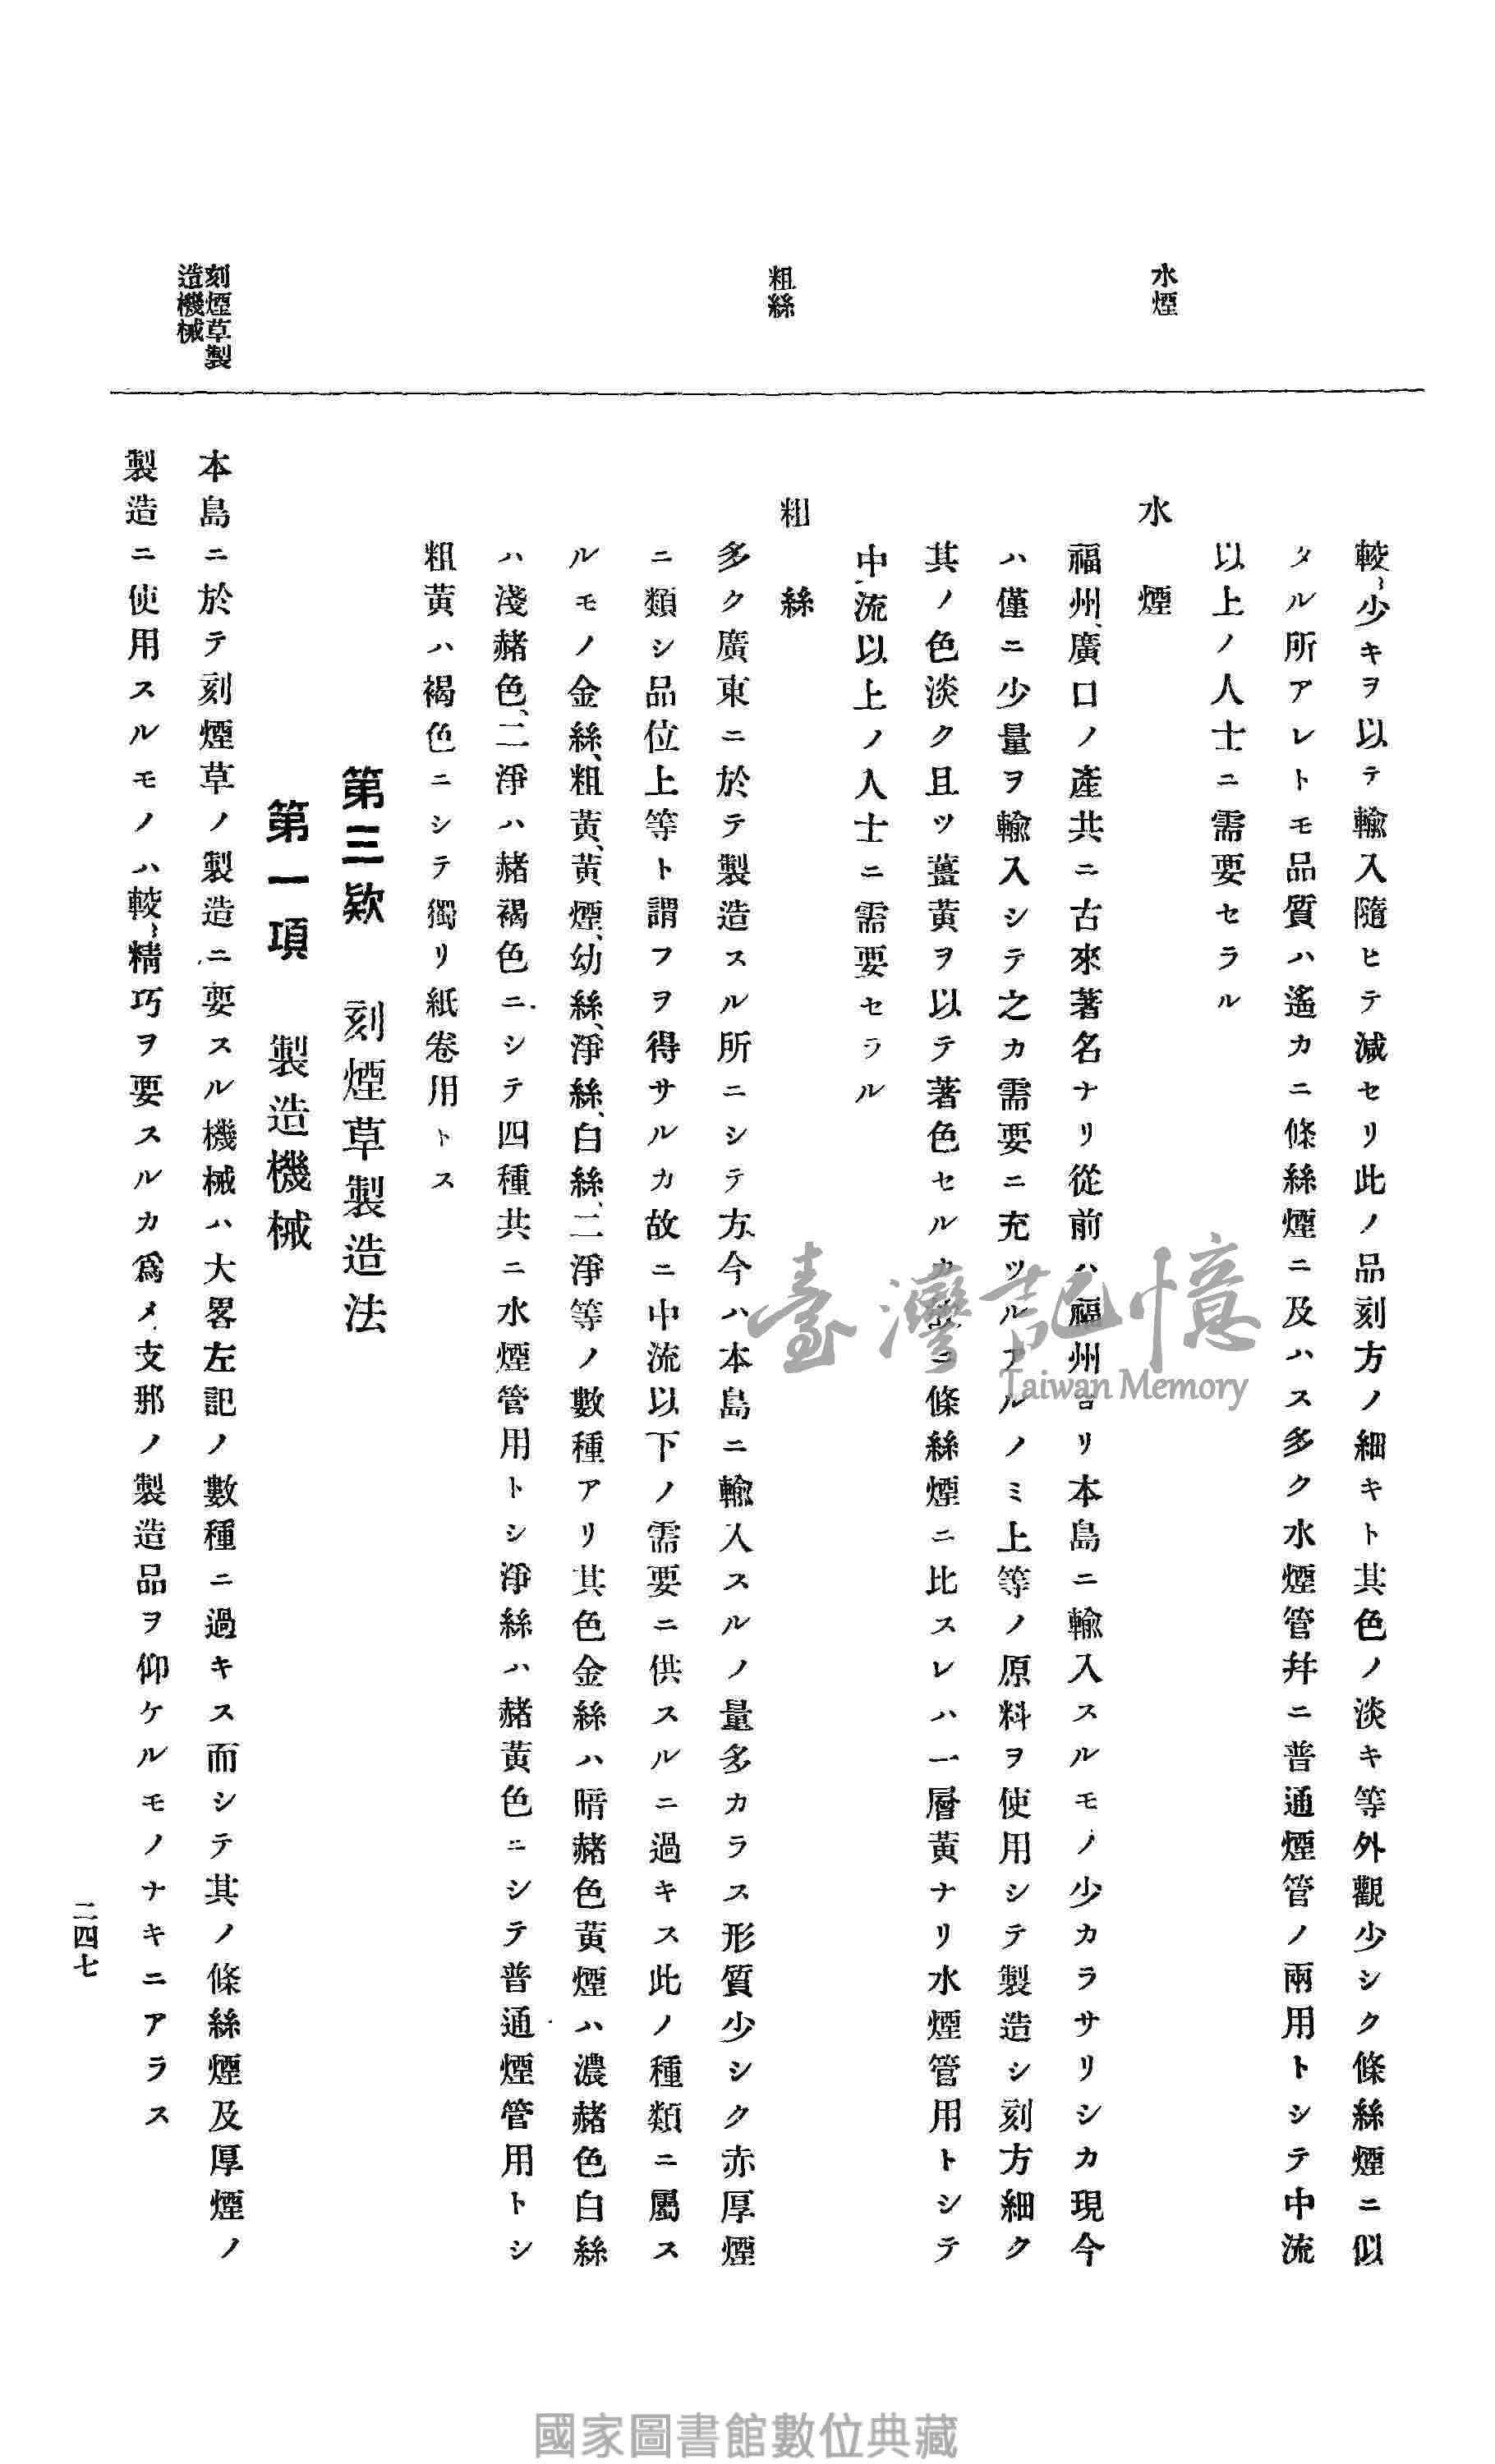 水煙
粗絲
刻煙草製
造機械
較〻少キヲ以テ輸入隨ヒテ減セリ此ノ品刻方ノ細キト其色ノ淡キ等外觀少シク條絲煙ニ似
タル所アレトモ品質ハ遙カニ條絲煙ニ及ハス多ク水煙管幷ニ普通煙管ノ兩用トシテ中流
以上ノ人士ニ需要セラル
水煙
福州、廣口ノ產共ニ古來著名ナリ從前ハ福州ヨリ本島ニ輸入スルモノ少カラサリシカ現今
ハ僅ニ少量ヲ輸入シテ之カ需要ニ充ツルアルノミ上等ノ原料ヲ使用シテ製造シ刻方細ク
其ノ色淡ク且ツ薑黃ヲ以テ著色セルカ故ニ條絲煙ニ比スレハ一層黃ナリ水煙管用トシテ
中流以上ノ人士ニ需要セラル
粗絲
多ク廣東ニ於テ製造スル所ニシテ方今ハ本島ニ輸入スルノ量多カラス形質少シク赤厚煙
ニ類シ品位上等ト謂フヲ得サルカ故ニ中流以下ノ需要ニ供スルニ過キス此ノ種類ニ屬ス
ルモノ金絲、粗黃、黃煙、幼絲、淨絲、白絲、二淨等ノ數種アリ其色金絲ハ暗赭色黃煙ハ濃赭色白絲
ハ淺赭色、二淨ハ赭褐色ニシテ四種共ニ水煙管用トシ淨絲ハ赭黃色ニシテ普通煙管用トシ
粗黃ハ褐色ニシテ獨リ紙卷用トス
第三欵 刻煙草製造法
第一項 製造機械
本島ニ於テ刻煙草ノ製造ニ要スル機械ハ大畧左記ノ數種ニ過キス而シテ其ノ條絲煙及厚煙ノ
製造ニ使用スルモノハ較〻精巧ヲ要スルカ爲メ支那ノ製造品ヲ仰ケルモノナキニアラス
二四七
臺灣記憶
Taiwan Memory
國家圖書館數位典藏